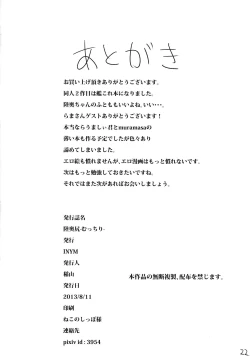 あとがき
お買い上げ頂きありがとうございます。
同人2作目は艦これ本になりました。
陸奥ちゃんのふとももいいよね、いい・・・。
らまさんゲストありがとうございます！
本当ならうましぃ君とmuramasaの
薄い本も作る予定でしたが色々あり
諦めてしまいました。
エロ絵も慣れませんが、エロ漫画はもっと慣れないです。
次はもっと勉強しておきたいですね。
それではまた次があればお会いしましょう。
発行誌名
陸奥尻-むっちり-
発行
INYM
発行人
様山
発行日
2013/8/11
印刷
ねこのしっぽ様
連絡先
pixiv id : 3954
本作品の無断複製、配布を禁じます。
22